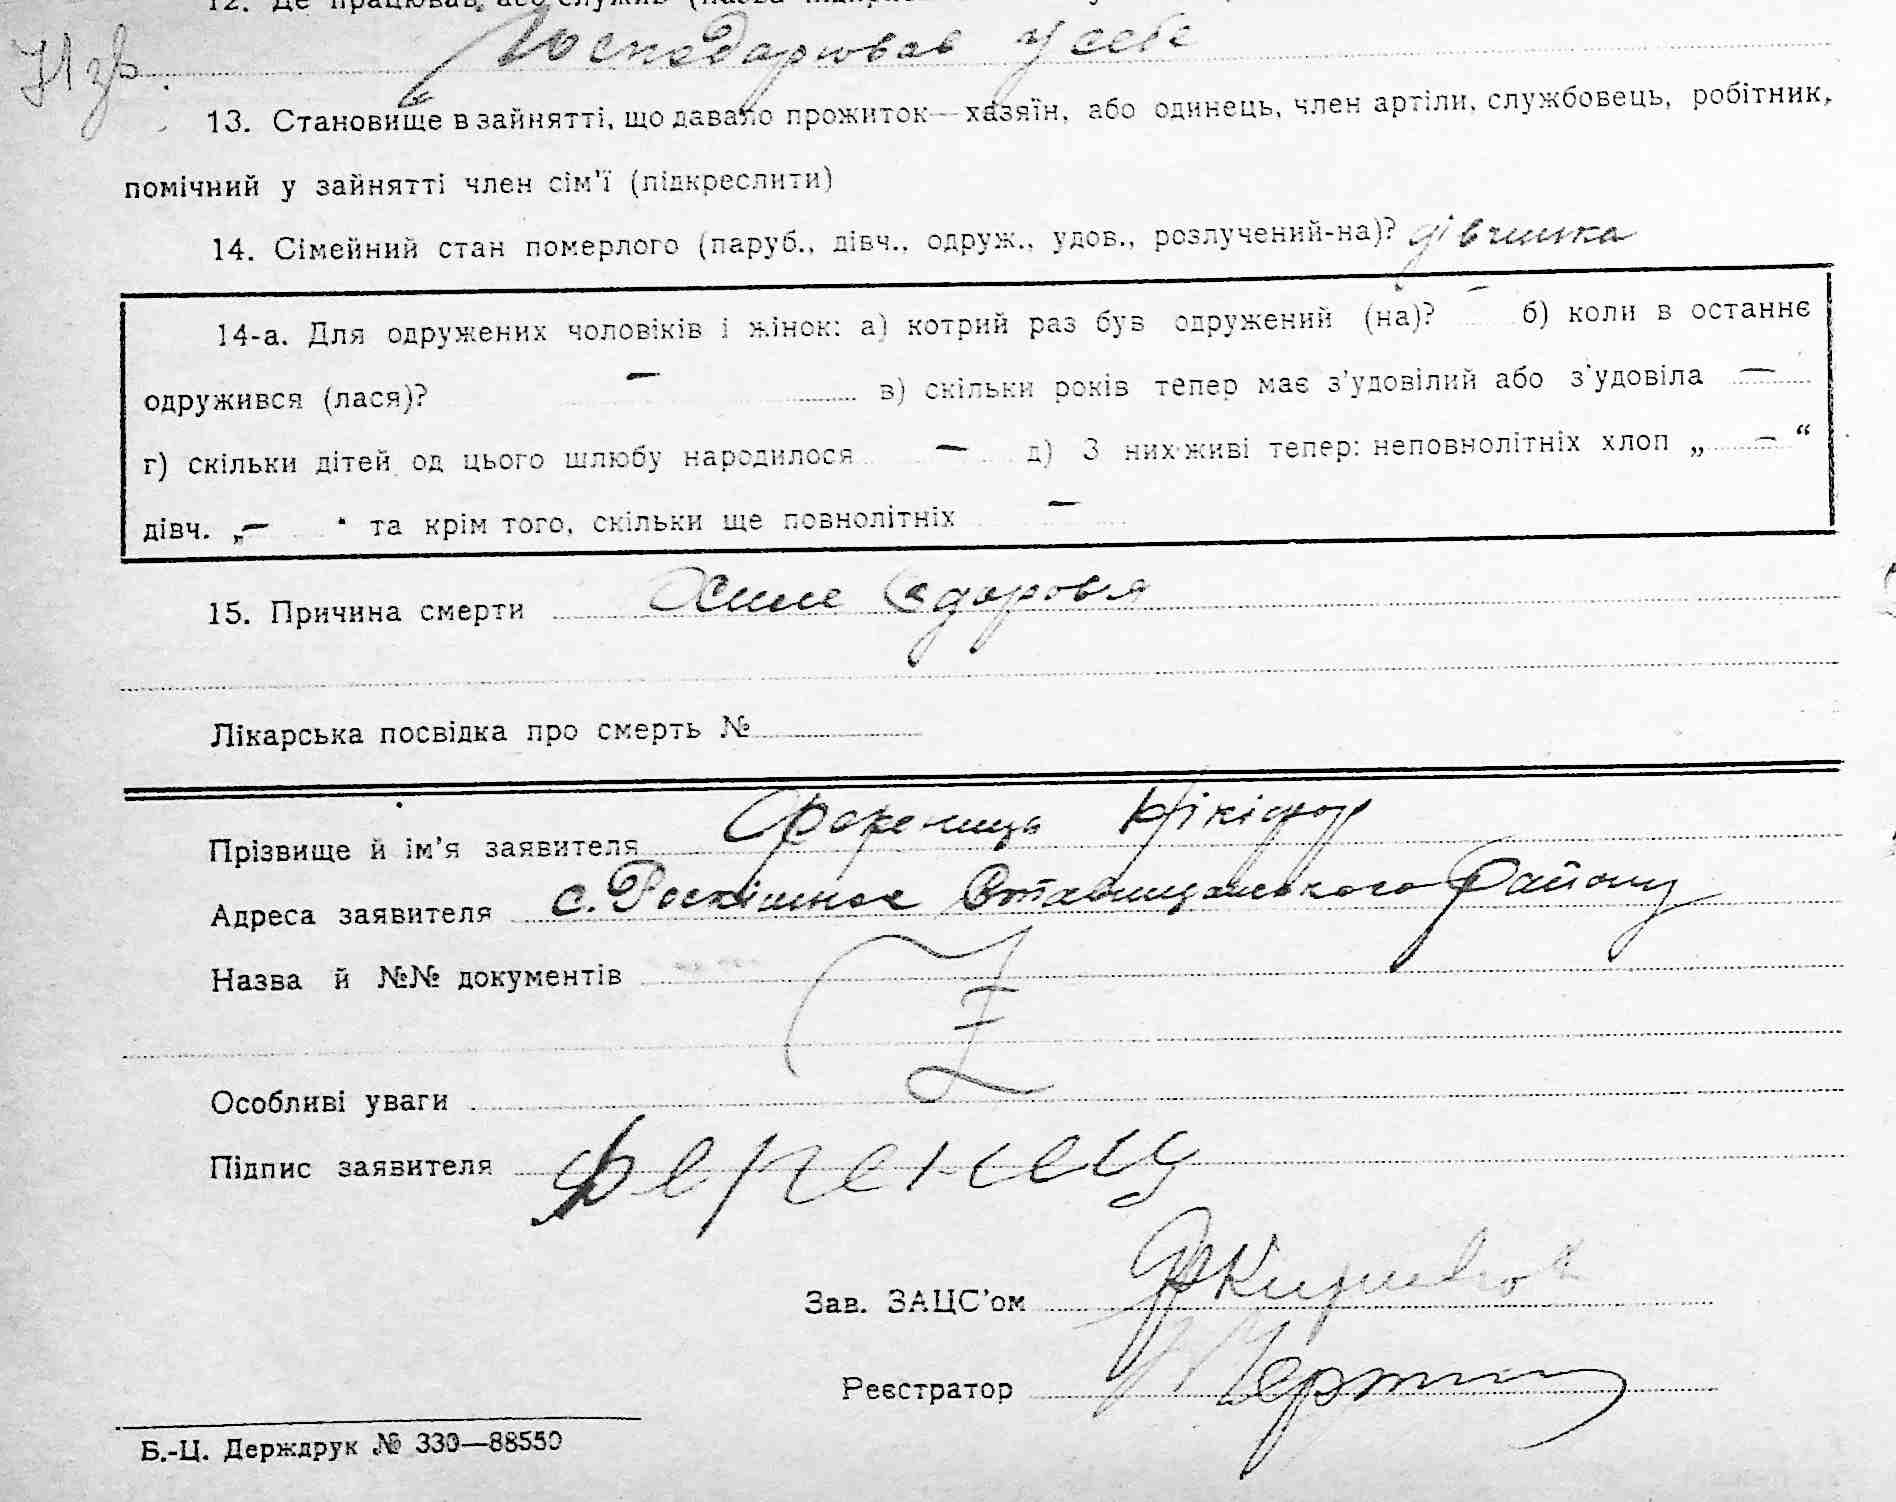 12. Де працював, або служив (назва
Господарював у себе
13. Становище в зайнятті, що давало прожиток—хазяїн, або одинець, член артіли, службовець, робітник,
помічний у зайнятті член сім'ї (підкреслити)
14. Сімейний стан померлого (паруб., дівч., одруж., удов., розлучений-на)? дівчинка
14-а. Для одружених чоловіків і жінок: а) котрий раз був одружений (на)? — б) коли в останнє
одружився (лася)? — в) скільки років тепер має з'удовілий або з'удовіла —
г) скільки дітей од цього шлюбу народилося — д) З них живі тепер: неповнолітніх хлоп „ — “
дівч. „— “ та крім того, скільки ще повнолітніх —
15. Причина смерти Хиле здоровя
Лікарська посвідка про смерть №
Прізвище й ім'я заявителя Ференець Нікіфор
Адреса заявителя с. Розкішная Ставищанського Району
Назва й №№ документів
Особливі уваги
Підпис заявителя Ференец
Зав. ЗАЦС'ом
Реєстратор
Б.-Ц. Держдрук № 330—88550